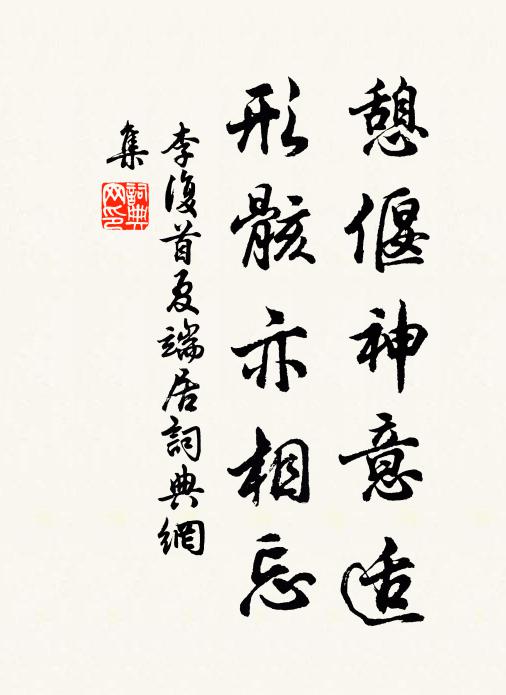 憩偃神意适
形骸亦相忘
李復首夏端居詞典網
集
詞典
网印